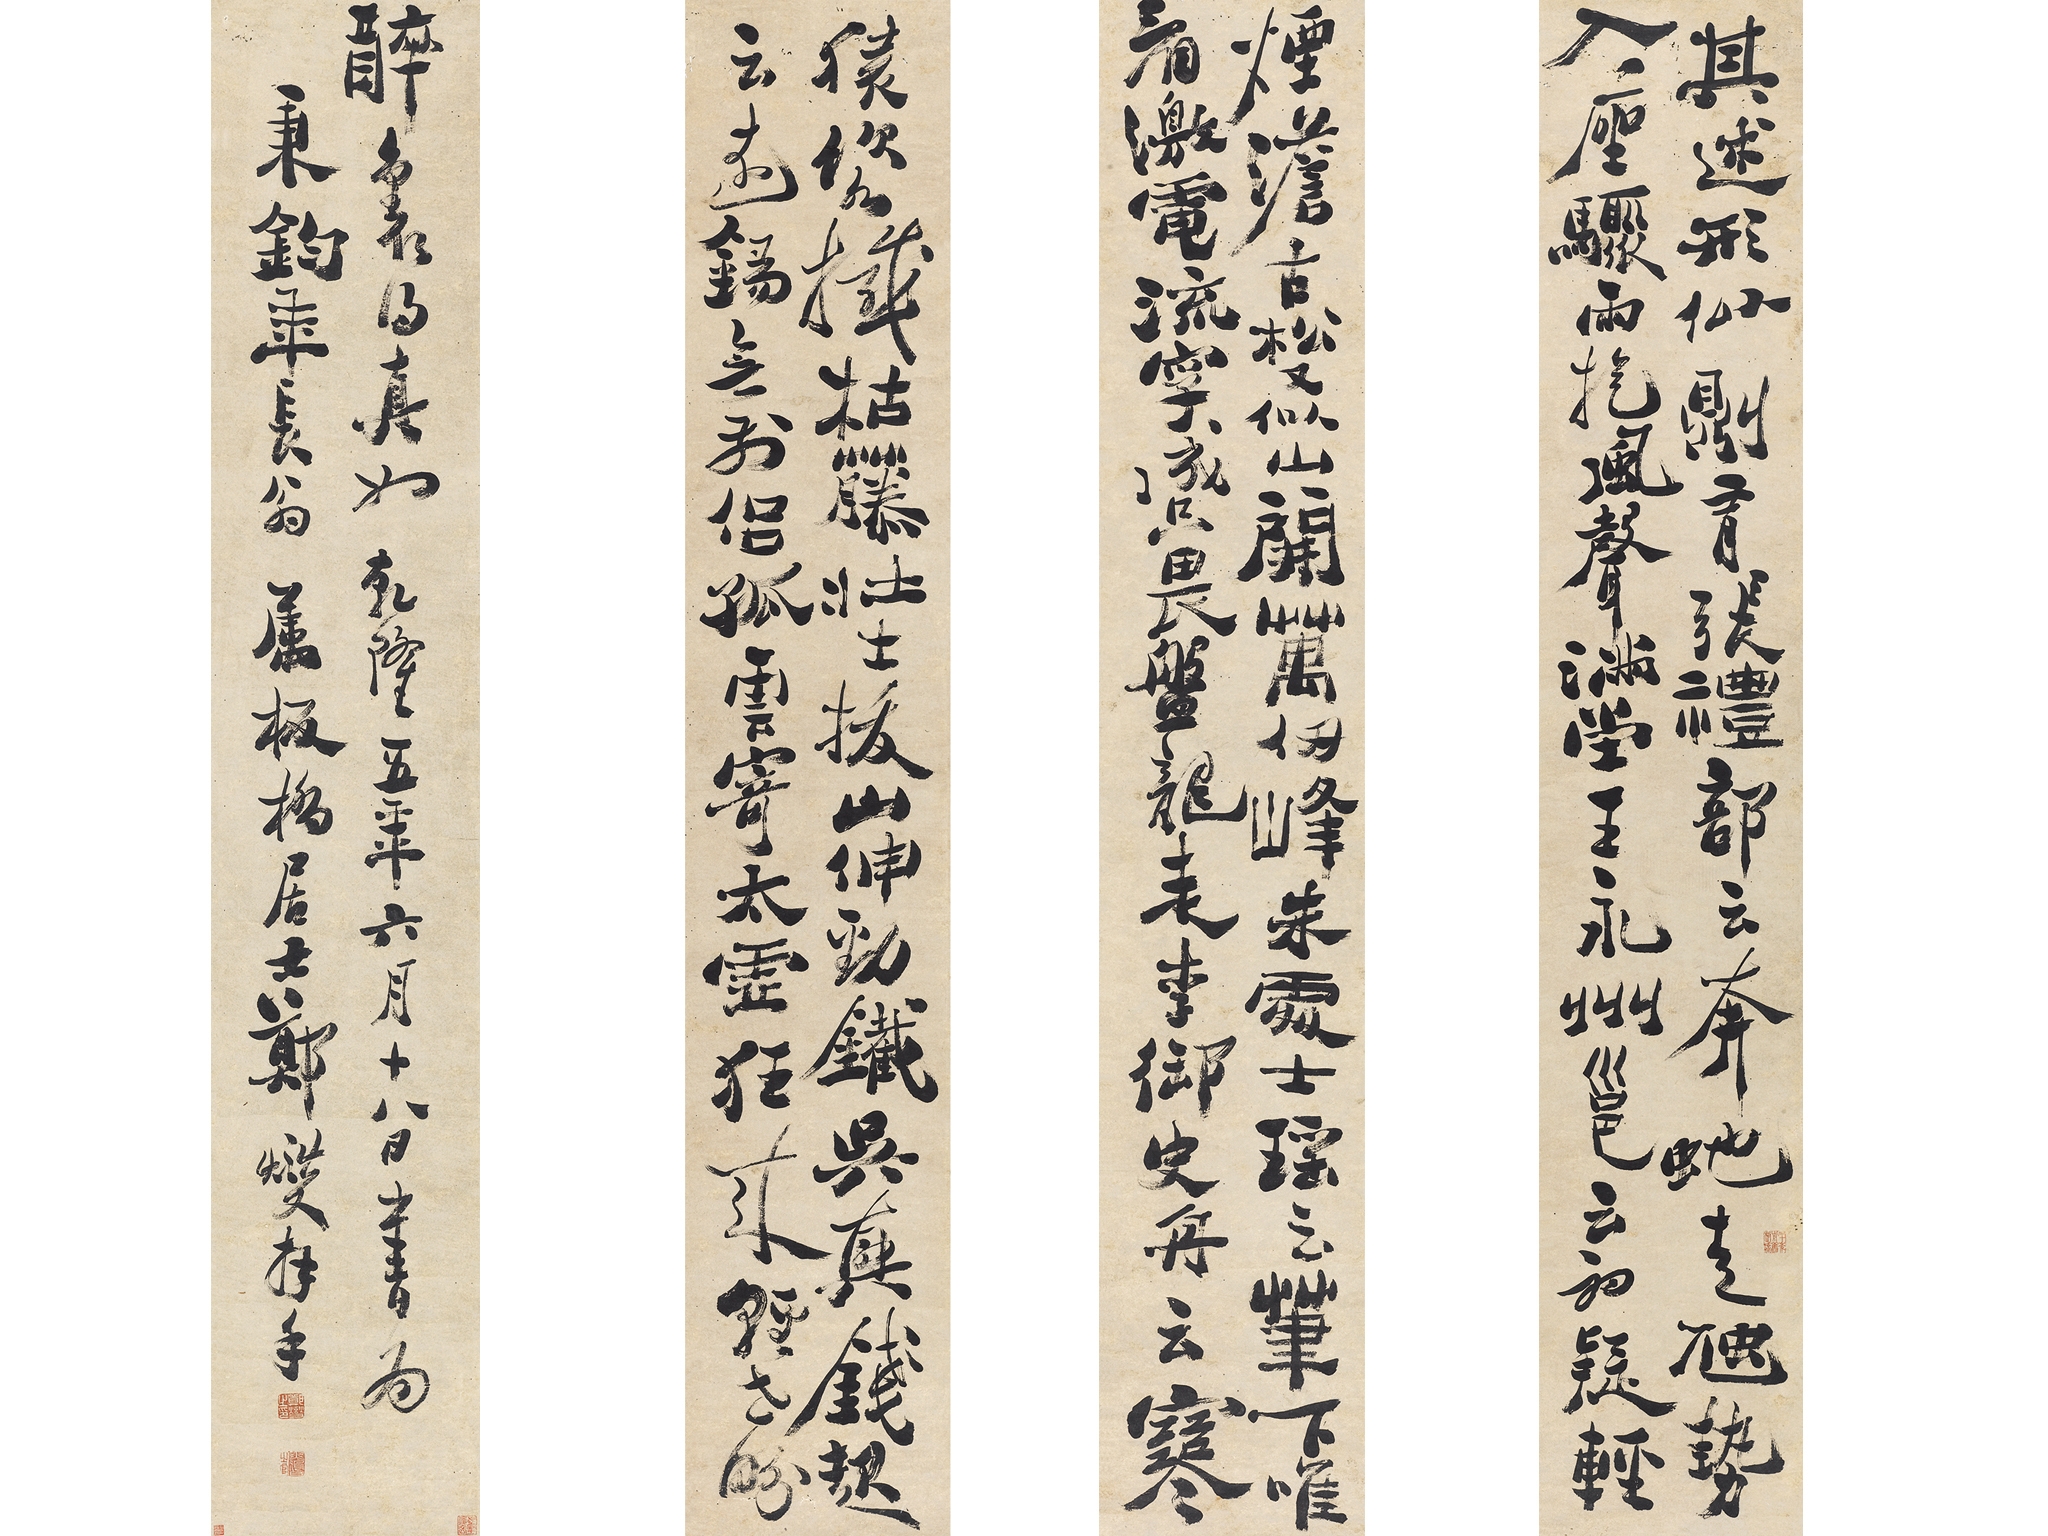 其述形似則有張禮部云奔蛇走虺勢
入座驟雨旋風聲滿堂王永州邕云初疑輕
煙澹古松又似山開萬仞峰朱處士瑤云筆下唯
看激電流字成只畏盤龍走李御史舟云寒
猿飲水撼枯藤壯士拔山伸勁鐵吳興錢起
云遠錫無前侶孤雲寄太虛狂來輕世界
醉裏得真如 乾隆五年六月十八日書為
秉鈞年長翁 屬板橋居士鄭燮拜手